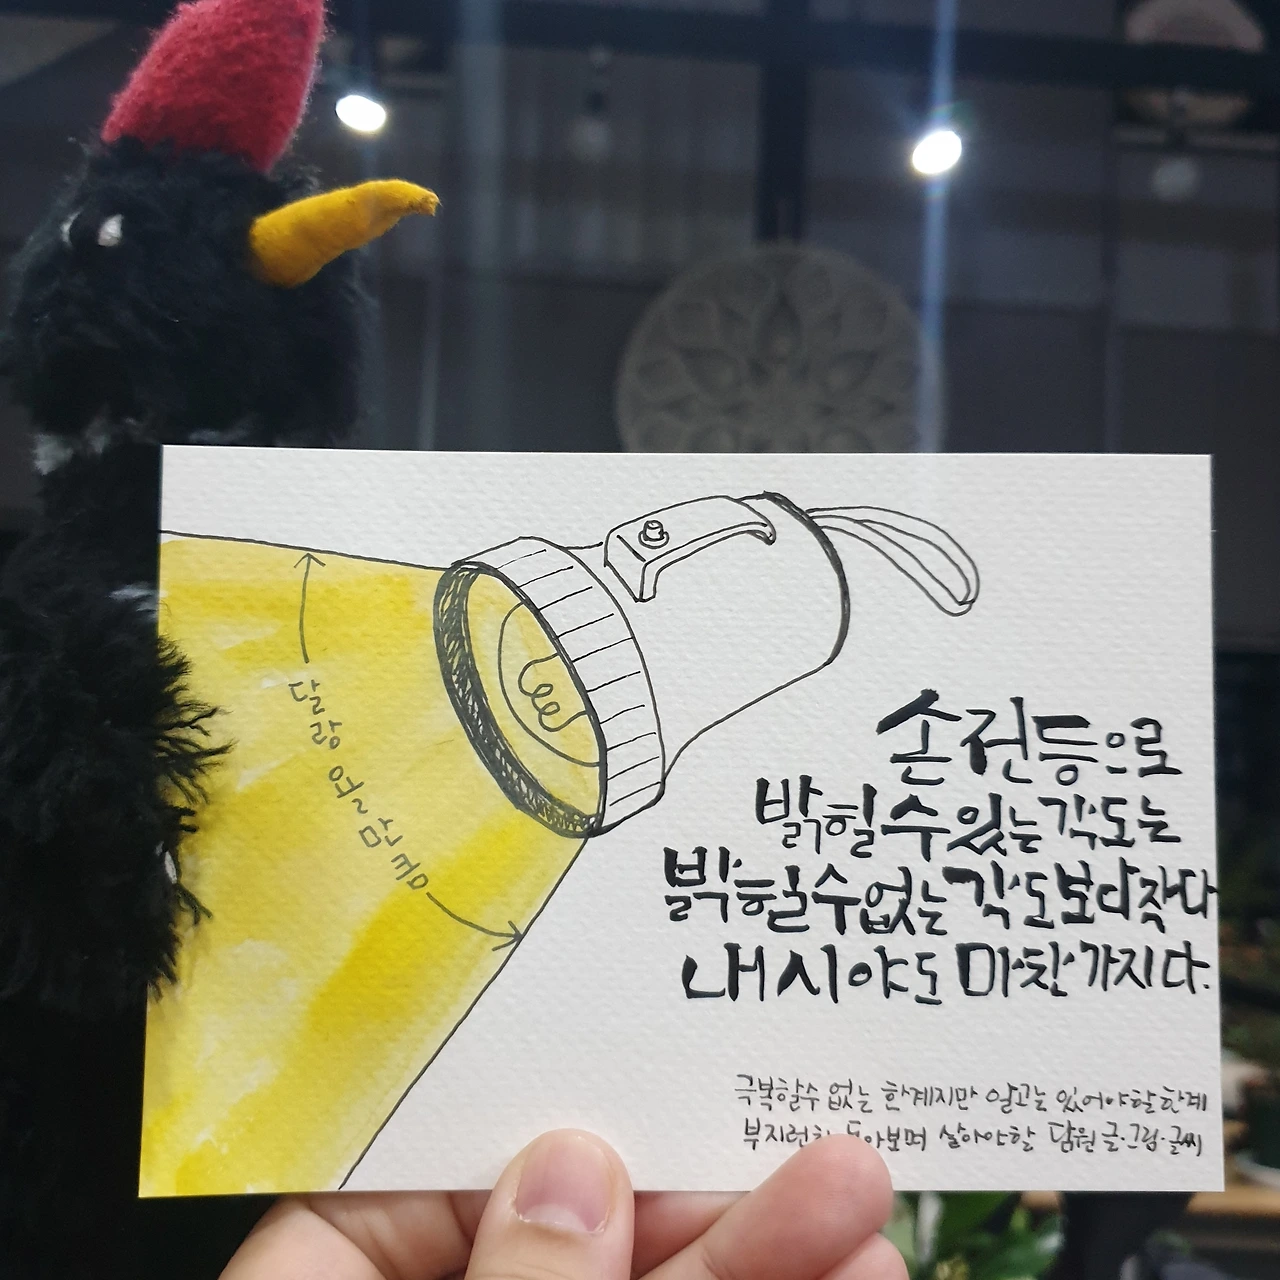 달랑 요만큼
손전등으로
밝힐 수 있는 각도는
밝힐 수 없는 각도보다 작다
내 시야도 마찬가지다.
극복할 수 없는 한계지만 알고는 있어야 할 한계
부지런히 돌아보며 살아야 할 담원 글·그림·글씨